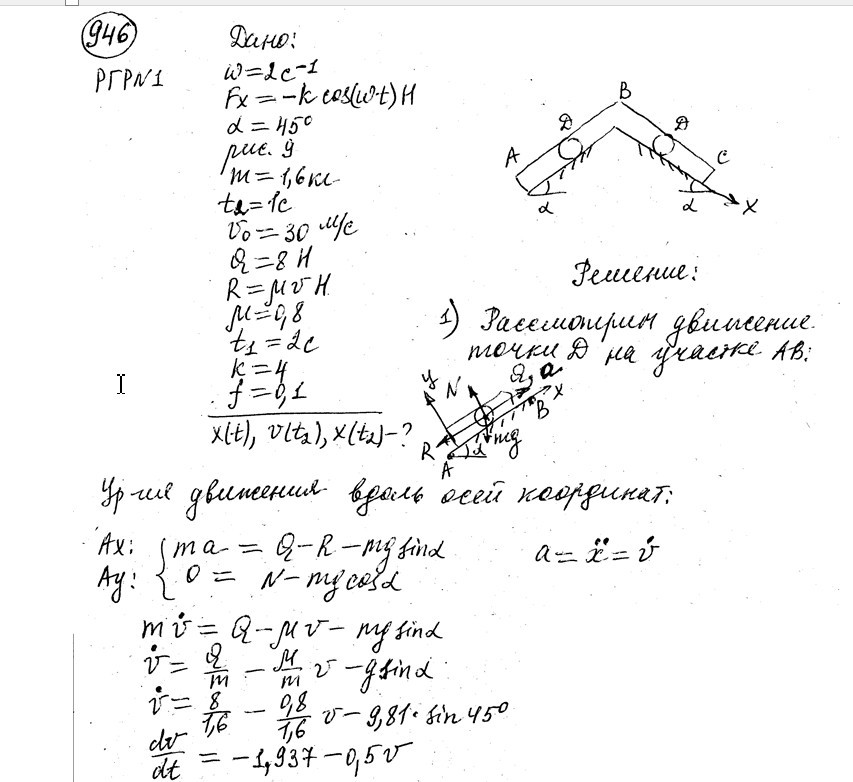 946
РГР№1
Дано:
ω=2c⁻¹
Fx=-k cos(ωt) H
α=45°
рис. 9
m=1,6кг
t₂=1c
v₀=30 м/c
Q=8 H
R=μv H
μ=0,8
t₁=2c
k=4
f=0,1
x(t), v(t₂), x(t₂)-?
B
D D
A C
α α X
Решение:
1) Рассмотрим движение
точки D на участке AB:
y N Q, a X
B
R α mg
A
Ур-ия движения вдоль осей координат:
Ax: { ma = Q-R-mg sinα a=ẍ=v̇
Ay: { 0 = N-mg cosα
mv̇ = Q-μv-mg sinα
v̇ = Q/m - μ/m v - g sinα
v̇ = 8/1,6 - 0,8/1,6 v - 9,81· sin 45°
dv/dt = -1,937-0,5v